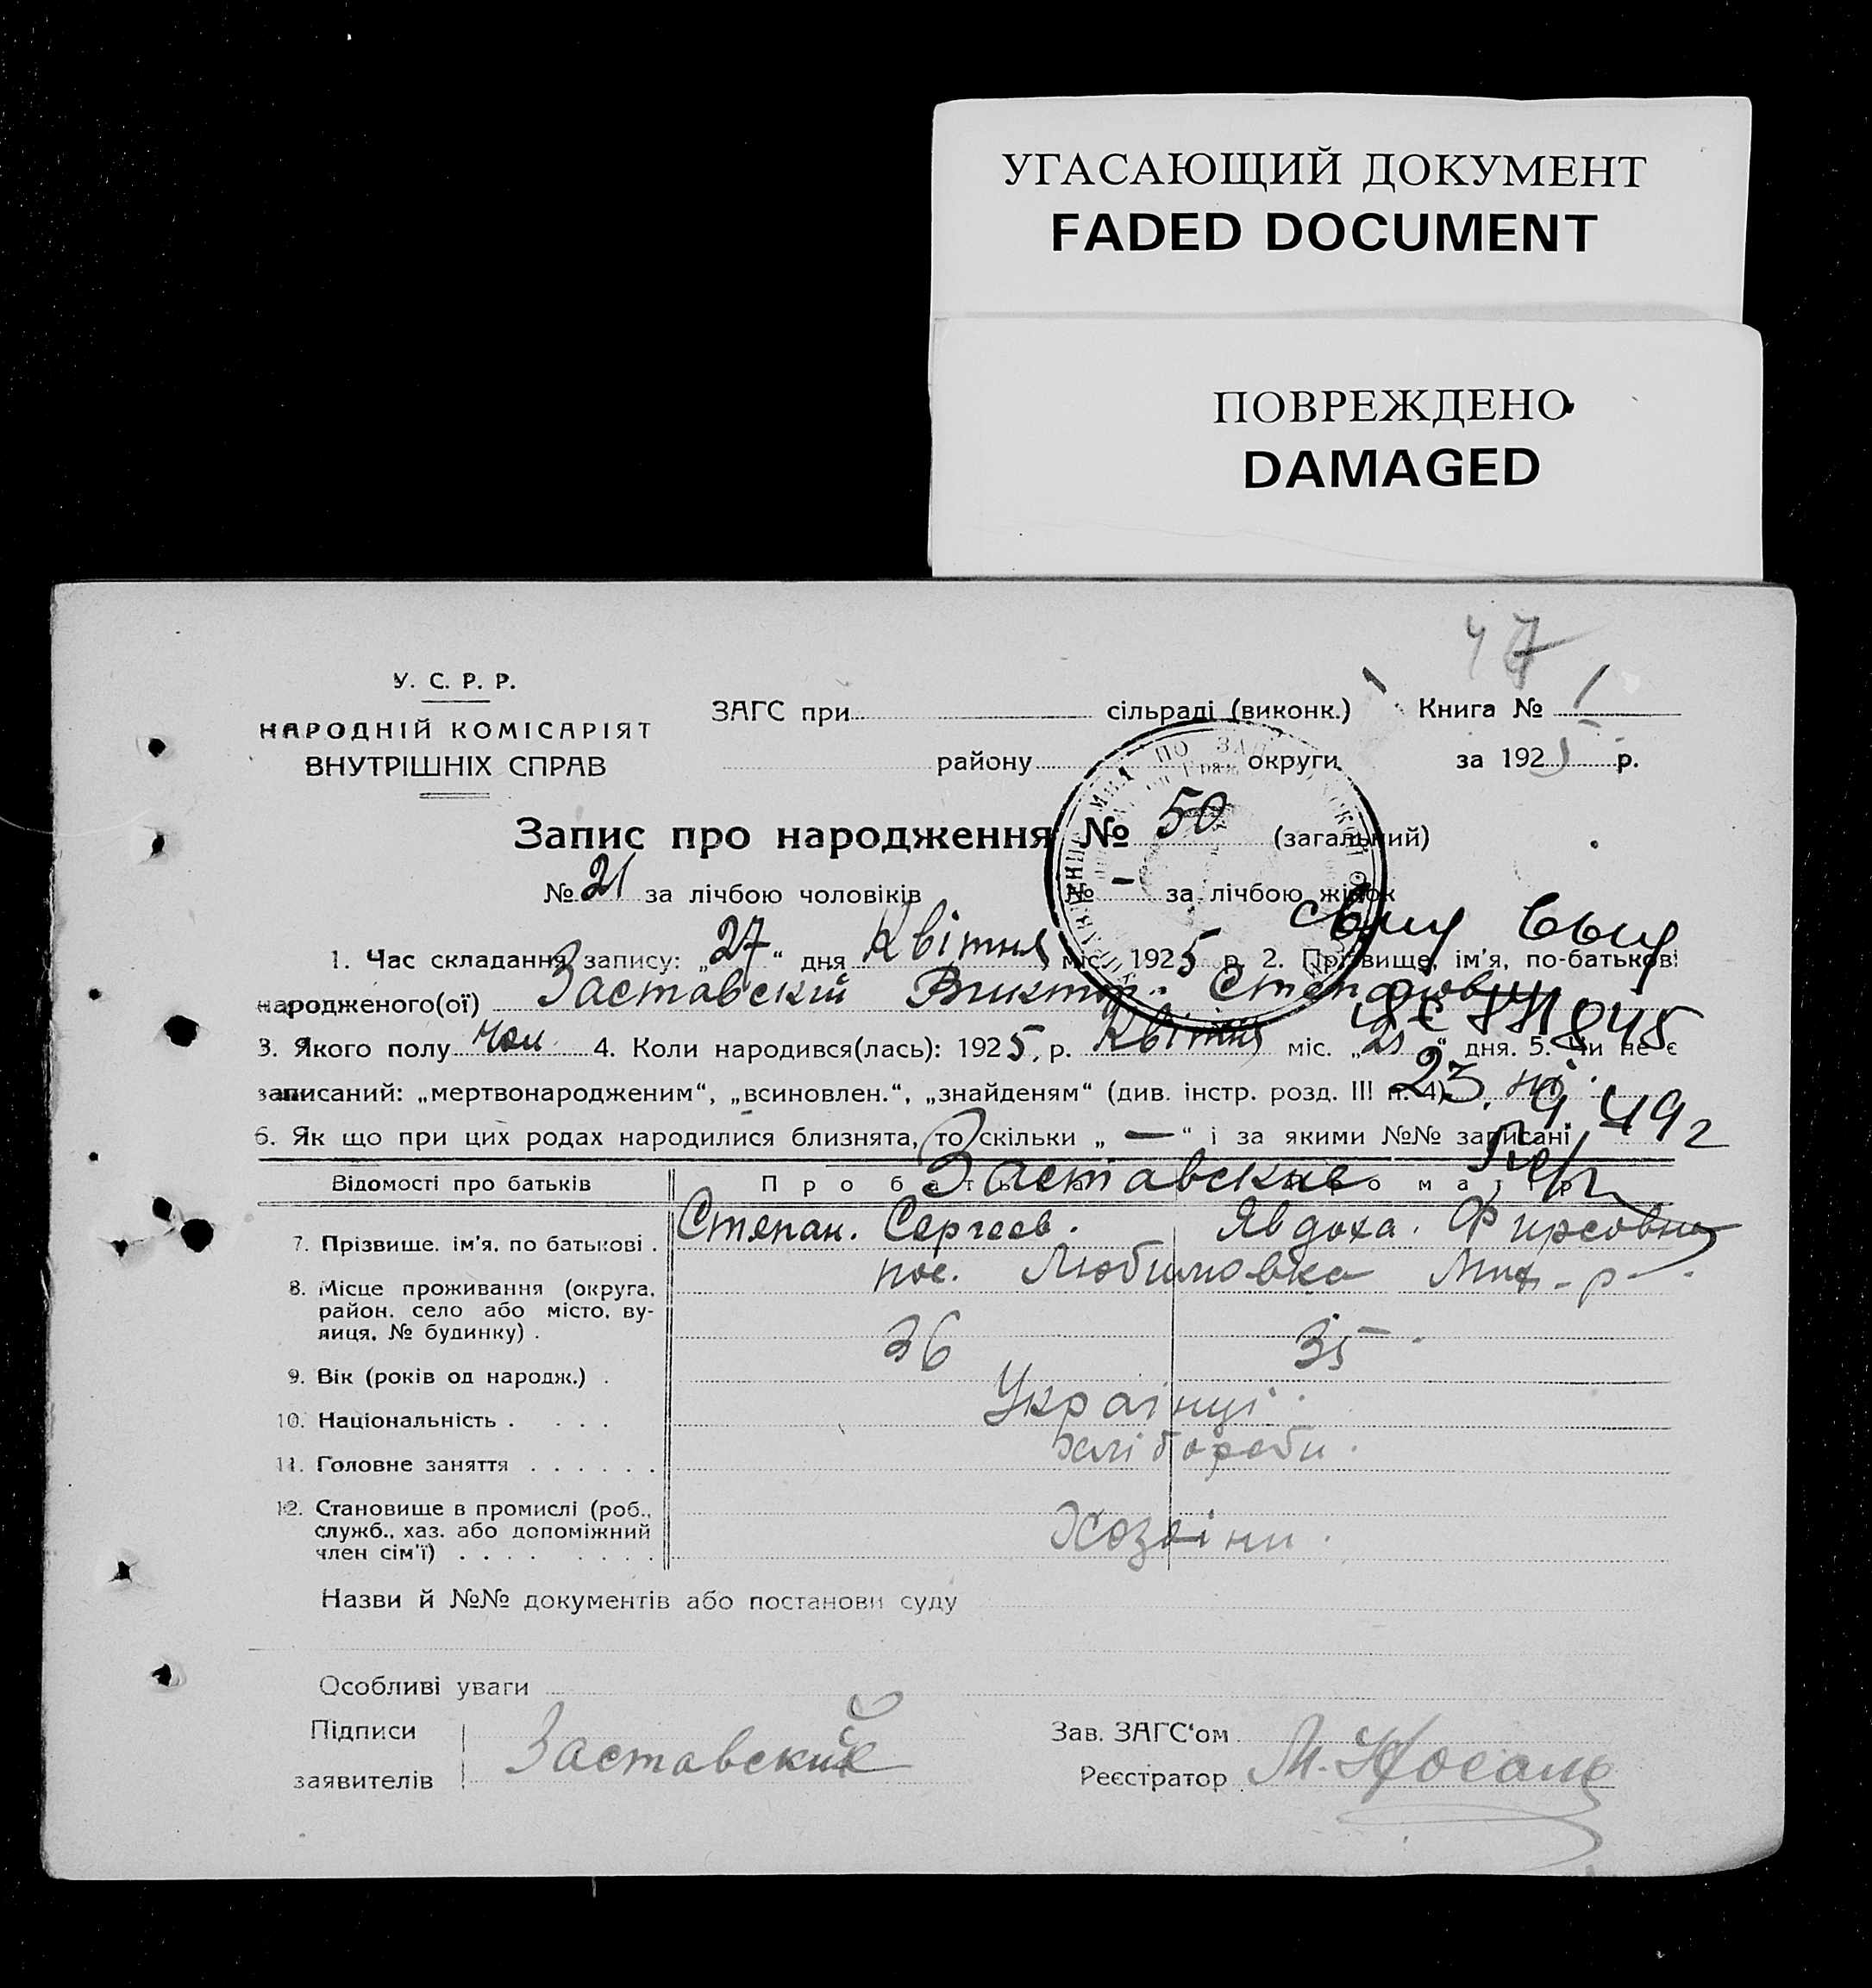 УГАСАЮЩИЙ ДОКУМЕНТ
FADED DOCUMENT
ПОВРЕЖДЕНО
DAMAGED
47
У. С. Р. Р.
НАРОДНІЙ КОМІСАРІЯТ
ВНУТРІШНІХ СПРАВ
ЗАГС при сільраді (виконк.) Книга № 1
району округи за 1925 р.
Запис про народження № 50 (загальний)
№ 21 за лічбою чоловіків № — за лічбою жінок
1. Час складання запису: „27“ дня Квітня міс. 1925 р. 2. Прізвище, ім'я, по-батькові
народженого(ої) Заставский Виктор Степанович
3. Якого полу чол. 4. Коли народився(лась): 1925 р. Квітня міс. „21“ дня. 5. Чи не є
записаний: „мертвонародженим“, „всиновлен.“, „знайденям“ (див. інстр. розд. III п. 4) ні.
23. 9 49 г
6. Як що при цих родах народилися близнята, то скільки „—“ і за якими №№ записані
Відомості про батьків Про батька Про матір
Заставские
7. Прізвище, ім'я, по батькові . Степан. Сергеев. Явдоха. Фирсовна
8. Місце проживання (округа, район, село або місто, вулиця, № будинку) . пос. Любимовка Мих-р.
9. Вік (років од народж.) . 36 35
10. Національність . . . . Українці.
11. Головне заняття . . . . . . Хлібороби.
12. Становище в промислі (роб., служб., хаз. або допоміжний член сім'ї) . . . . . . . . Хозяіни.
Назви й №№ документів або постанови суду
Особливі уваги
Підписи заявителів Заставский
Зав. ЗАГС'ом
Реєстратор М. Носаль